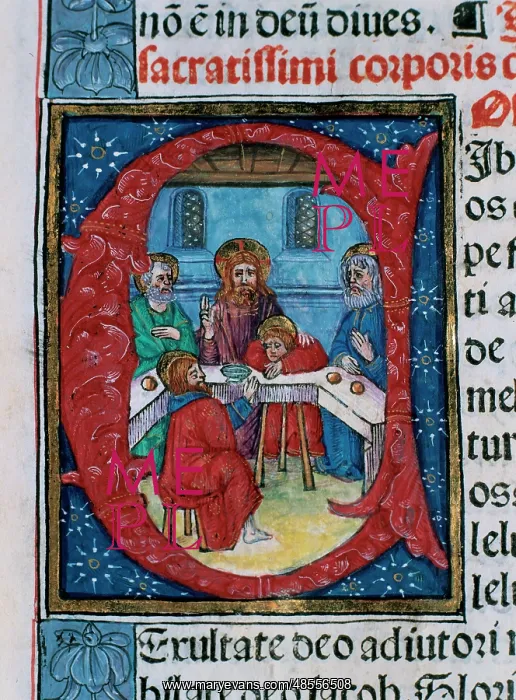 nō ē in deū diues. ¶
sacratissimi corporis
Ib
os
pet
ti a
de
mel
tur
oss
lelu
lelu
Exultate deo adiutori
ME
PL
ME
PL
www.maryevans.com/48556508